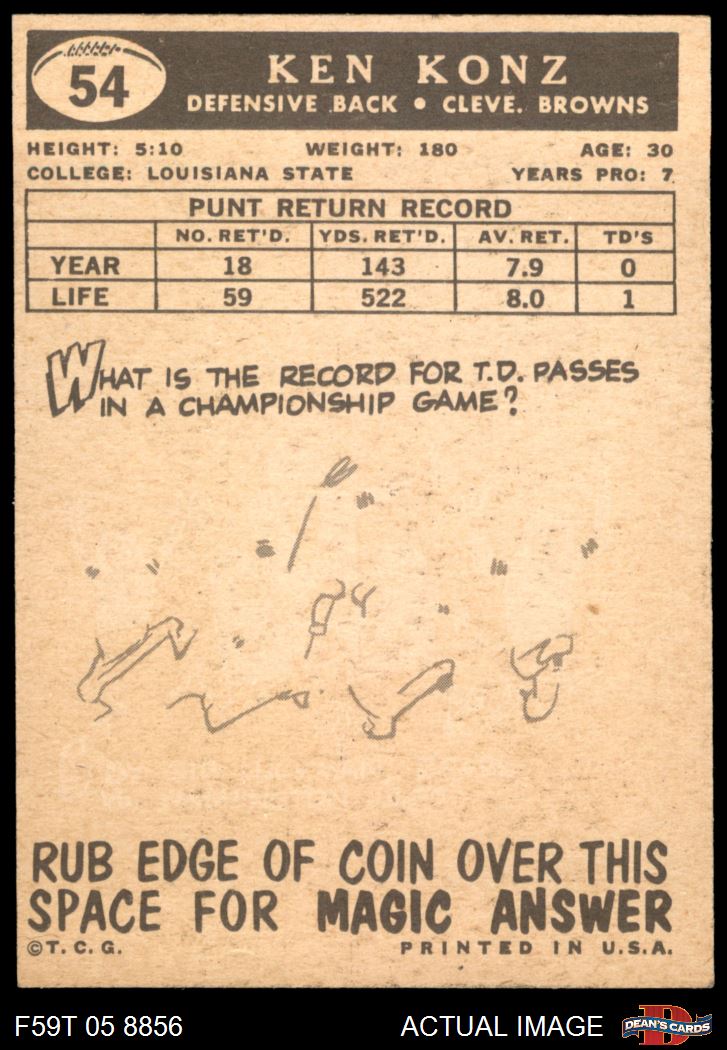 54
KEN KONZ
DEFENSIVE BACK • CLEVE. BROWNS
HEIGHT: 5:10 WEIGHT: 180 AGE: 30
COLLEGE: LOUISIANA STATE YEARS PRO: 7
PUNT RETURN RECORD
NO. RET'D. YDS. RET'D. AV. RET. TD'S
YEAR 18 143 7.9 0
LIFE 59 522 8.0 1
WHAT IS THE RECORD FOR T.D. PASSES
IN A CHAMPIONSHIP GAME?
RUB EDGE OF COIN OVER THIS
SPACE FOR MAGIC ANSWER
©T. C. G. PRINTED IN U.S.A.
F59T 05 8856 ACTUAL IMAGE DEAN'S CARDS